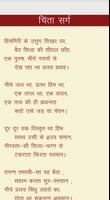 चिंता सर्ग
हिमगिरि के उत्तुंग शिखर पर,
बैठ शिला की शीतल छाँह,
एक पुरुष, भीगे नयनों से
देख रहा था प्रलय प्रवाह।
नीचे जल था, ऊपर हिम था,
एक तरल था, एक सघन,
एक तत्व की ही प्रधानता
कहो उसे जड़ या चेतन।
दूर दूर तक विस्तृत था हिम
स्तब्ध उसी के हृदय समान,
नीरवता-सी शिला-चरण से
टकराता फिरता पवमान।
तरुण तपस्वी-सा वह बैठा
साधन करता सुर-श्मशान,
नीचे प्रलय सिंधु लहरों का,